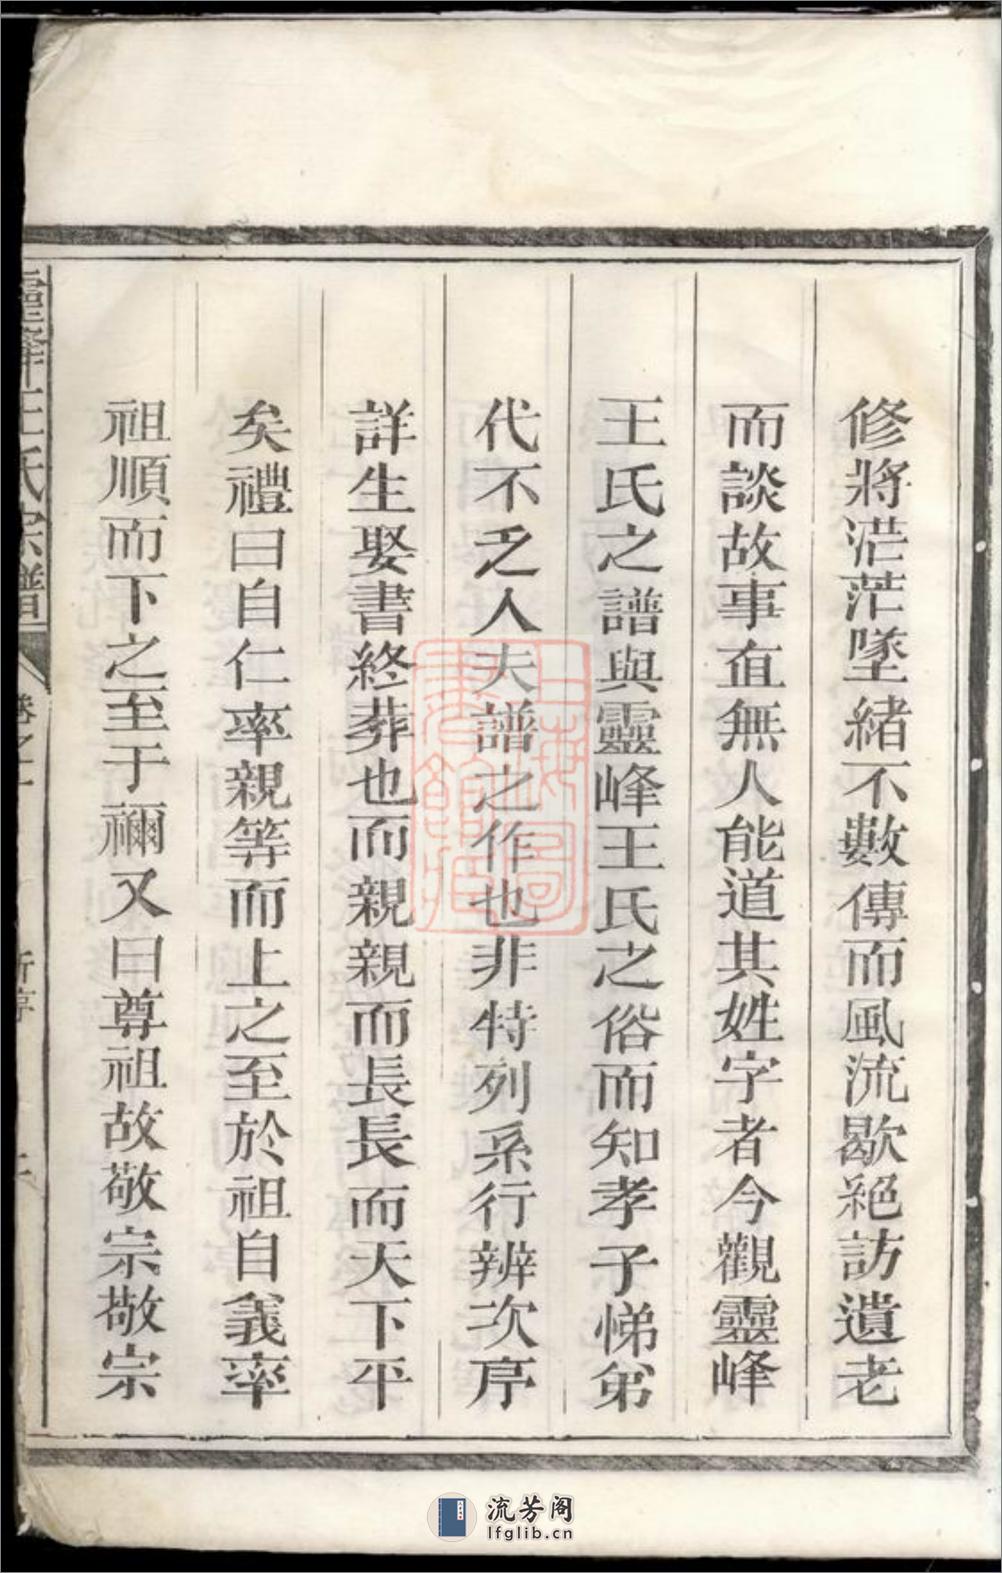 修將茫茫墜緒不數傳而風流歇絕訪遺老
而談故事直無人能道其姓字者今觀靈峰
王氏之譜與靈峰王氏之俗而知孝子悌弟
代不乏人夫譜之作也非特列系行辨次序
詳生娶書終葬也而親親而長長而天下平
矣禮曰自仁率親等而上之至於祖自義率
祖順而下之至于禰又曰尊祖故敬宗敬宗
靈峰王氏宗譜
卷之一
新序
上海圖書館藏
流芳阁
lfglib.cn